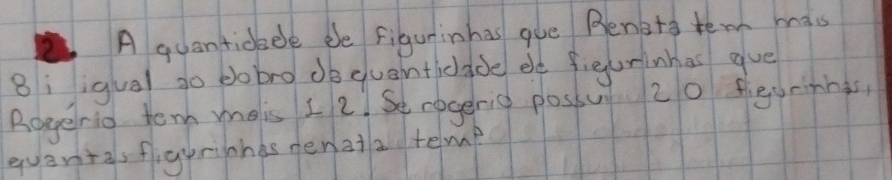 2. A quantidade de figurinhas que Renata tem mais
8 i igual ao dobro da quantidade de figurinhas que
Rogério tem mais 12. Se rogerio possui 20 figurinhas,
quantas figurinhas renata tem?